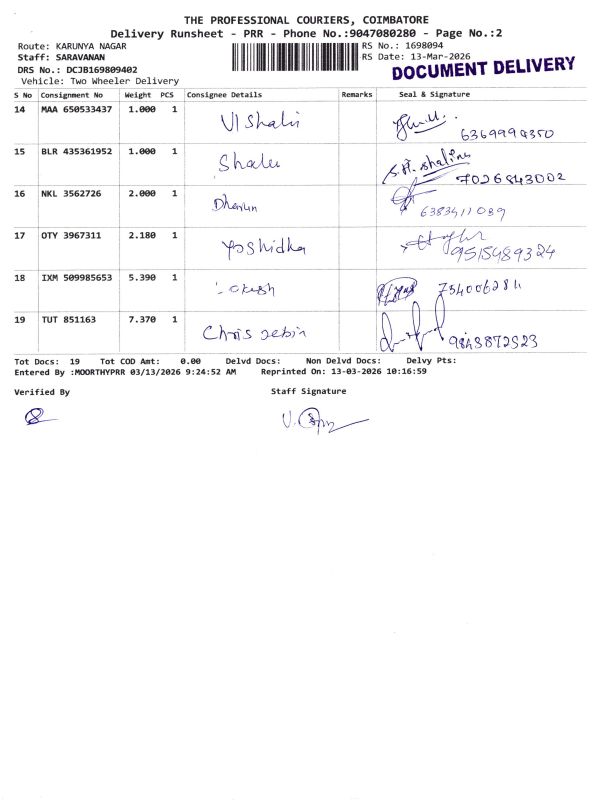 THE PROFESSIONAL COURIERS, COIMBATORE
Delivery Runsheet - PRR - Phone No.:9047080280 - Page No.:2
Route: KARUNYA NAGAR
Staff: SARAVANAN
DRS No.: DCJB169809402
Vehicle: Two Wheeler Delivery
RS No.: 1698094
RS Date: 13-Mar-2026
DOCUMENT DELIVERY
S No Consignment No Weight PCS Consignee Details Remarks Seal & Signature
14 MAA 650533437 1.000 1 Vishali
15 BLR 435361952 1.000 1 Shalu 7026843002
16 NKL 3562726 2.000 1 Dharun 6383411089
17 OTY 3967311 2.180 1 Yoshidha 9515489324
18 IXM 509985653 5.390 1
19 TUT 851163 7.370 1 Chris Jebin 9843872523
Tot Docs: 19 Tot COD Amt: 0.00 Delvd Docs: Non Delvd Docs: Delvy Pts:
Entered By :MOORTHYPRR 03/13/2026 9:24:52 AM Reprinted On: 13-03-2026 10:16:59
Verified By Staff Signature